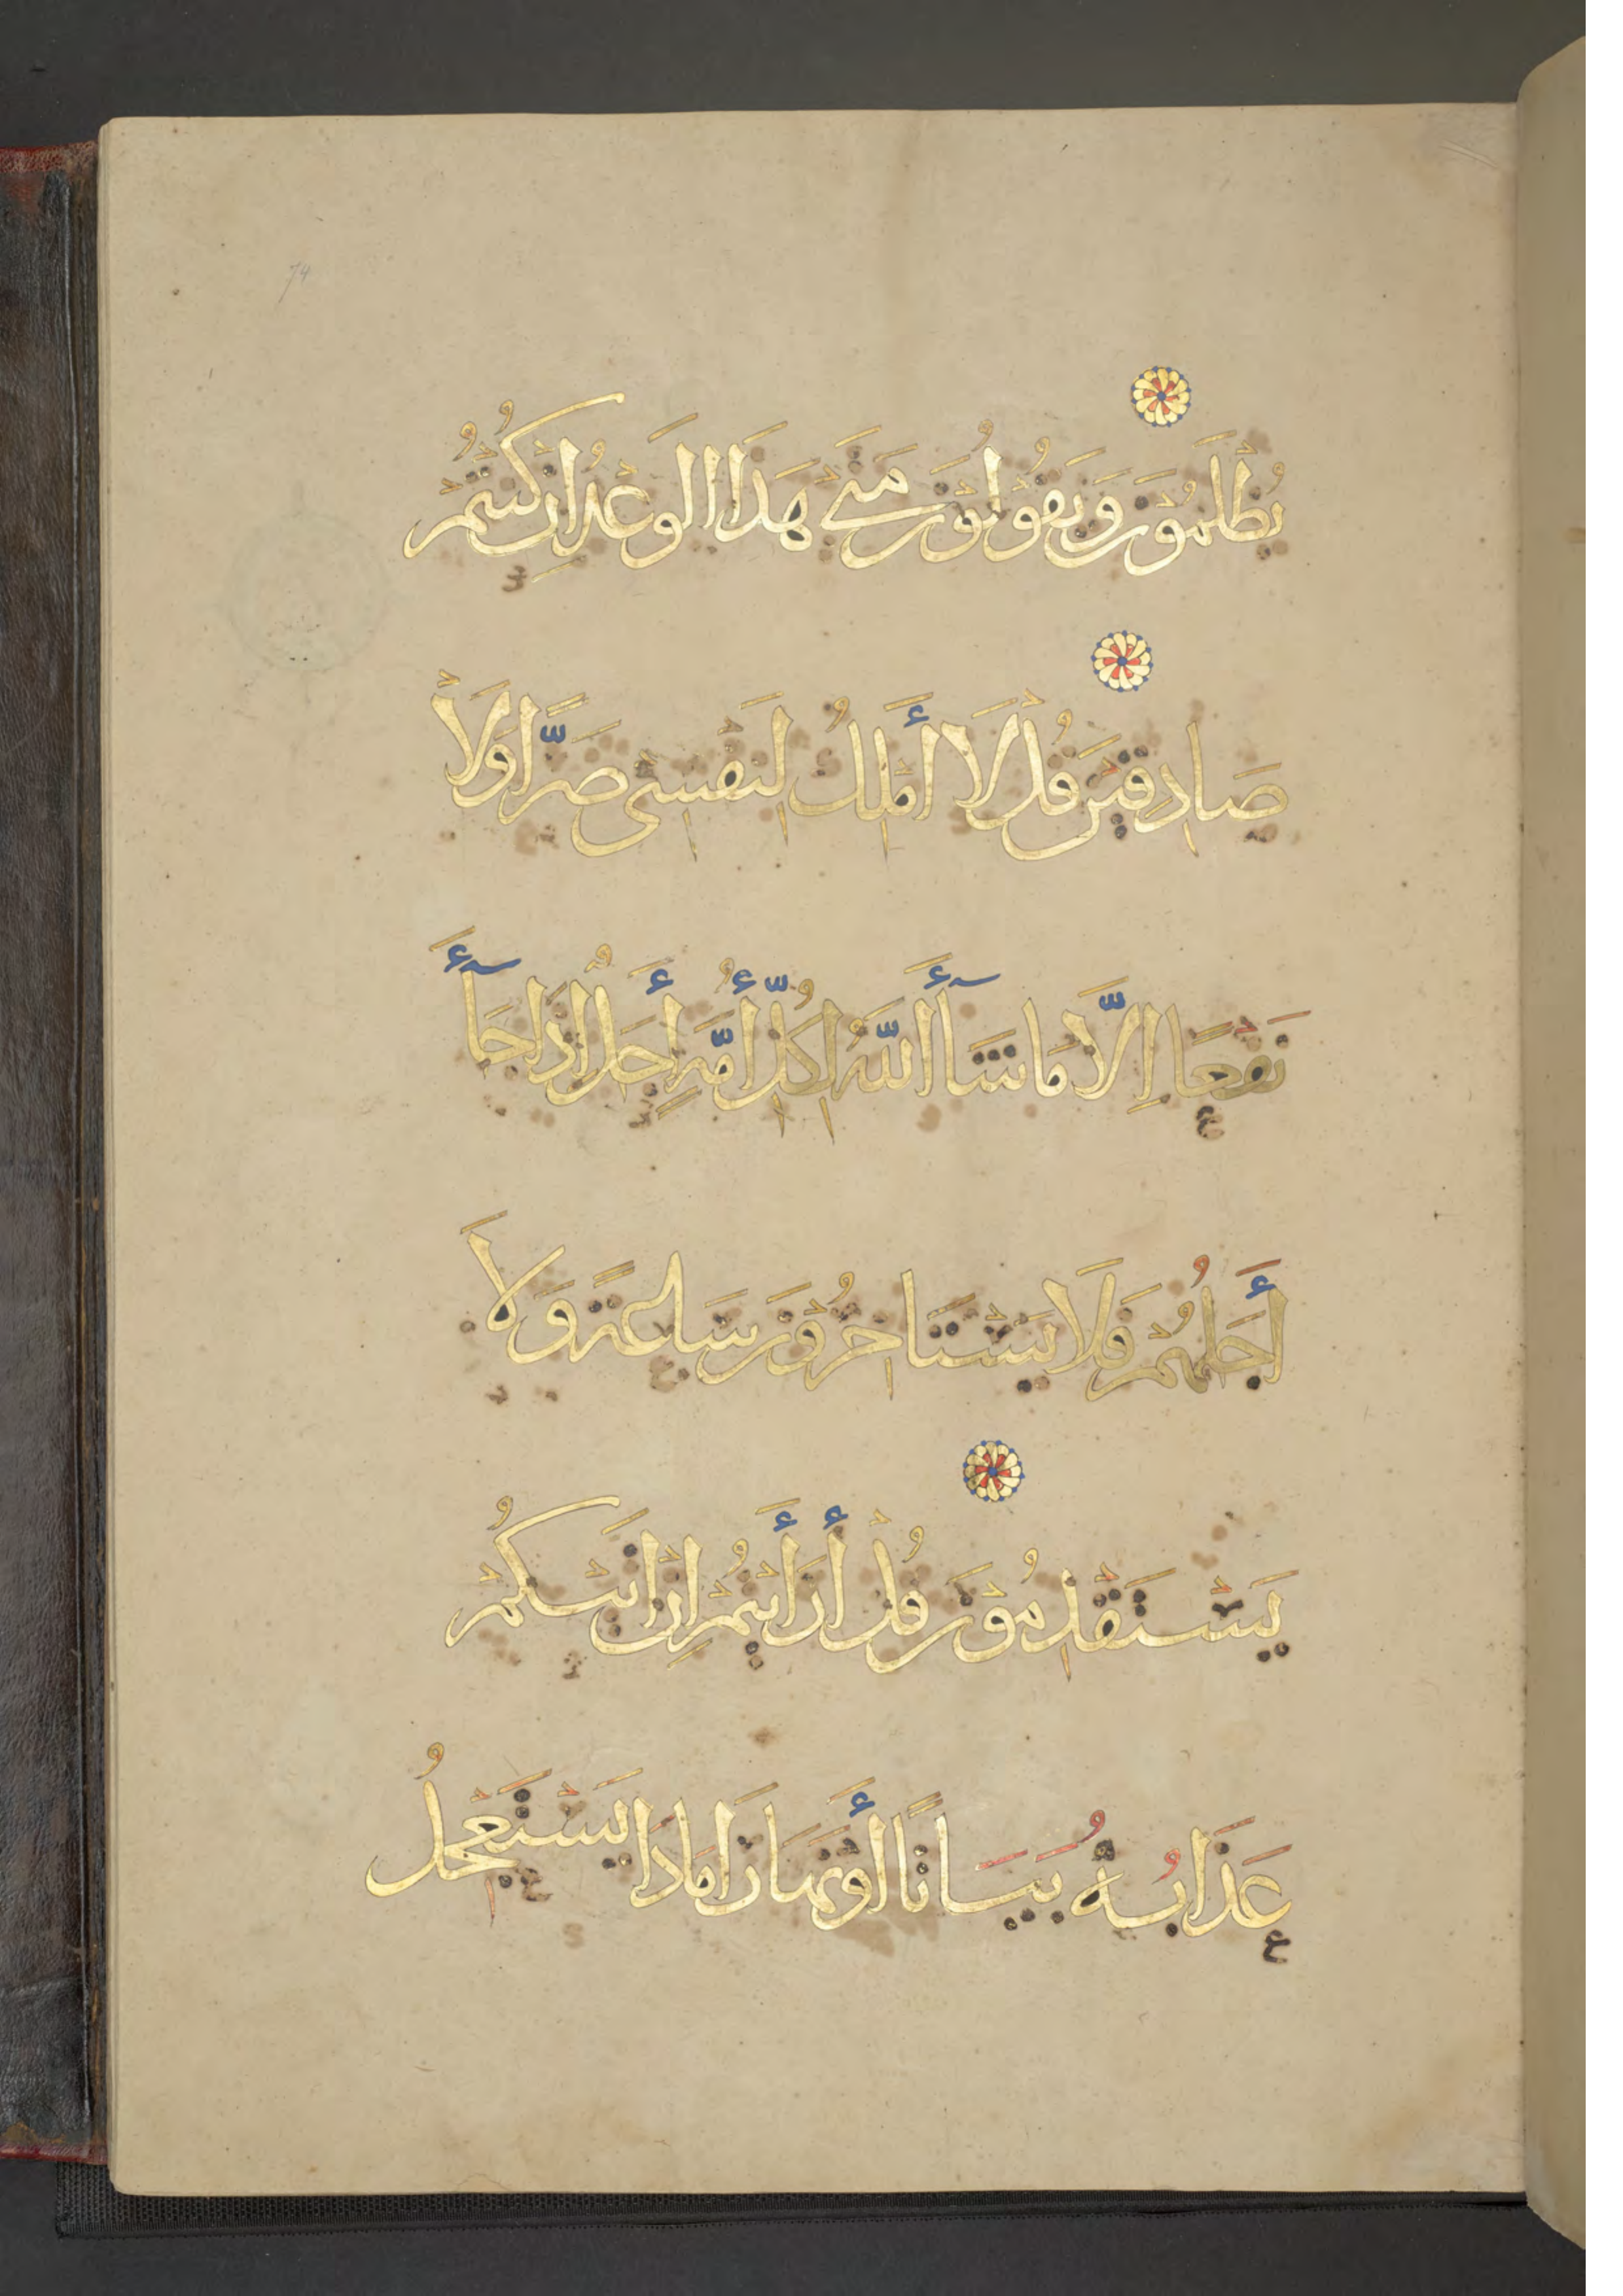 74
يُظْلَمُوْنَ وَيَقُوْلُوْنَ مَتَى هَذَا الْوَعْدُ اِنْ كُنْتُمْ
صَادِقِيْنَ قُلْ لَا أَمْلِكُ لِنَفْسِي ضَرًّا وَلَا
نَفْعًا اِلَّا مَا شَآأَ اللّٰهُ لِكُلِّ أُمَّةٍ أَجَلٌ اِذَا جَآأَ
أَجَلُهُمْ فَلَا يَسْتَاخِرُوْنَ سَاعَةً وَلَا
يَسْتَقْدِمُوْنَ قُلْ أَرَأَيْتُمْ اِنْ اَتَىكُمْ
عَذَابُهُ بَيَاتًا أَوْ نَهَارًا مَاذَا يَسْتَعْجِلُ